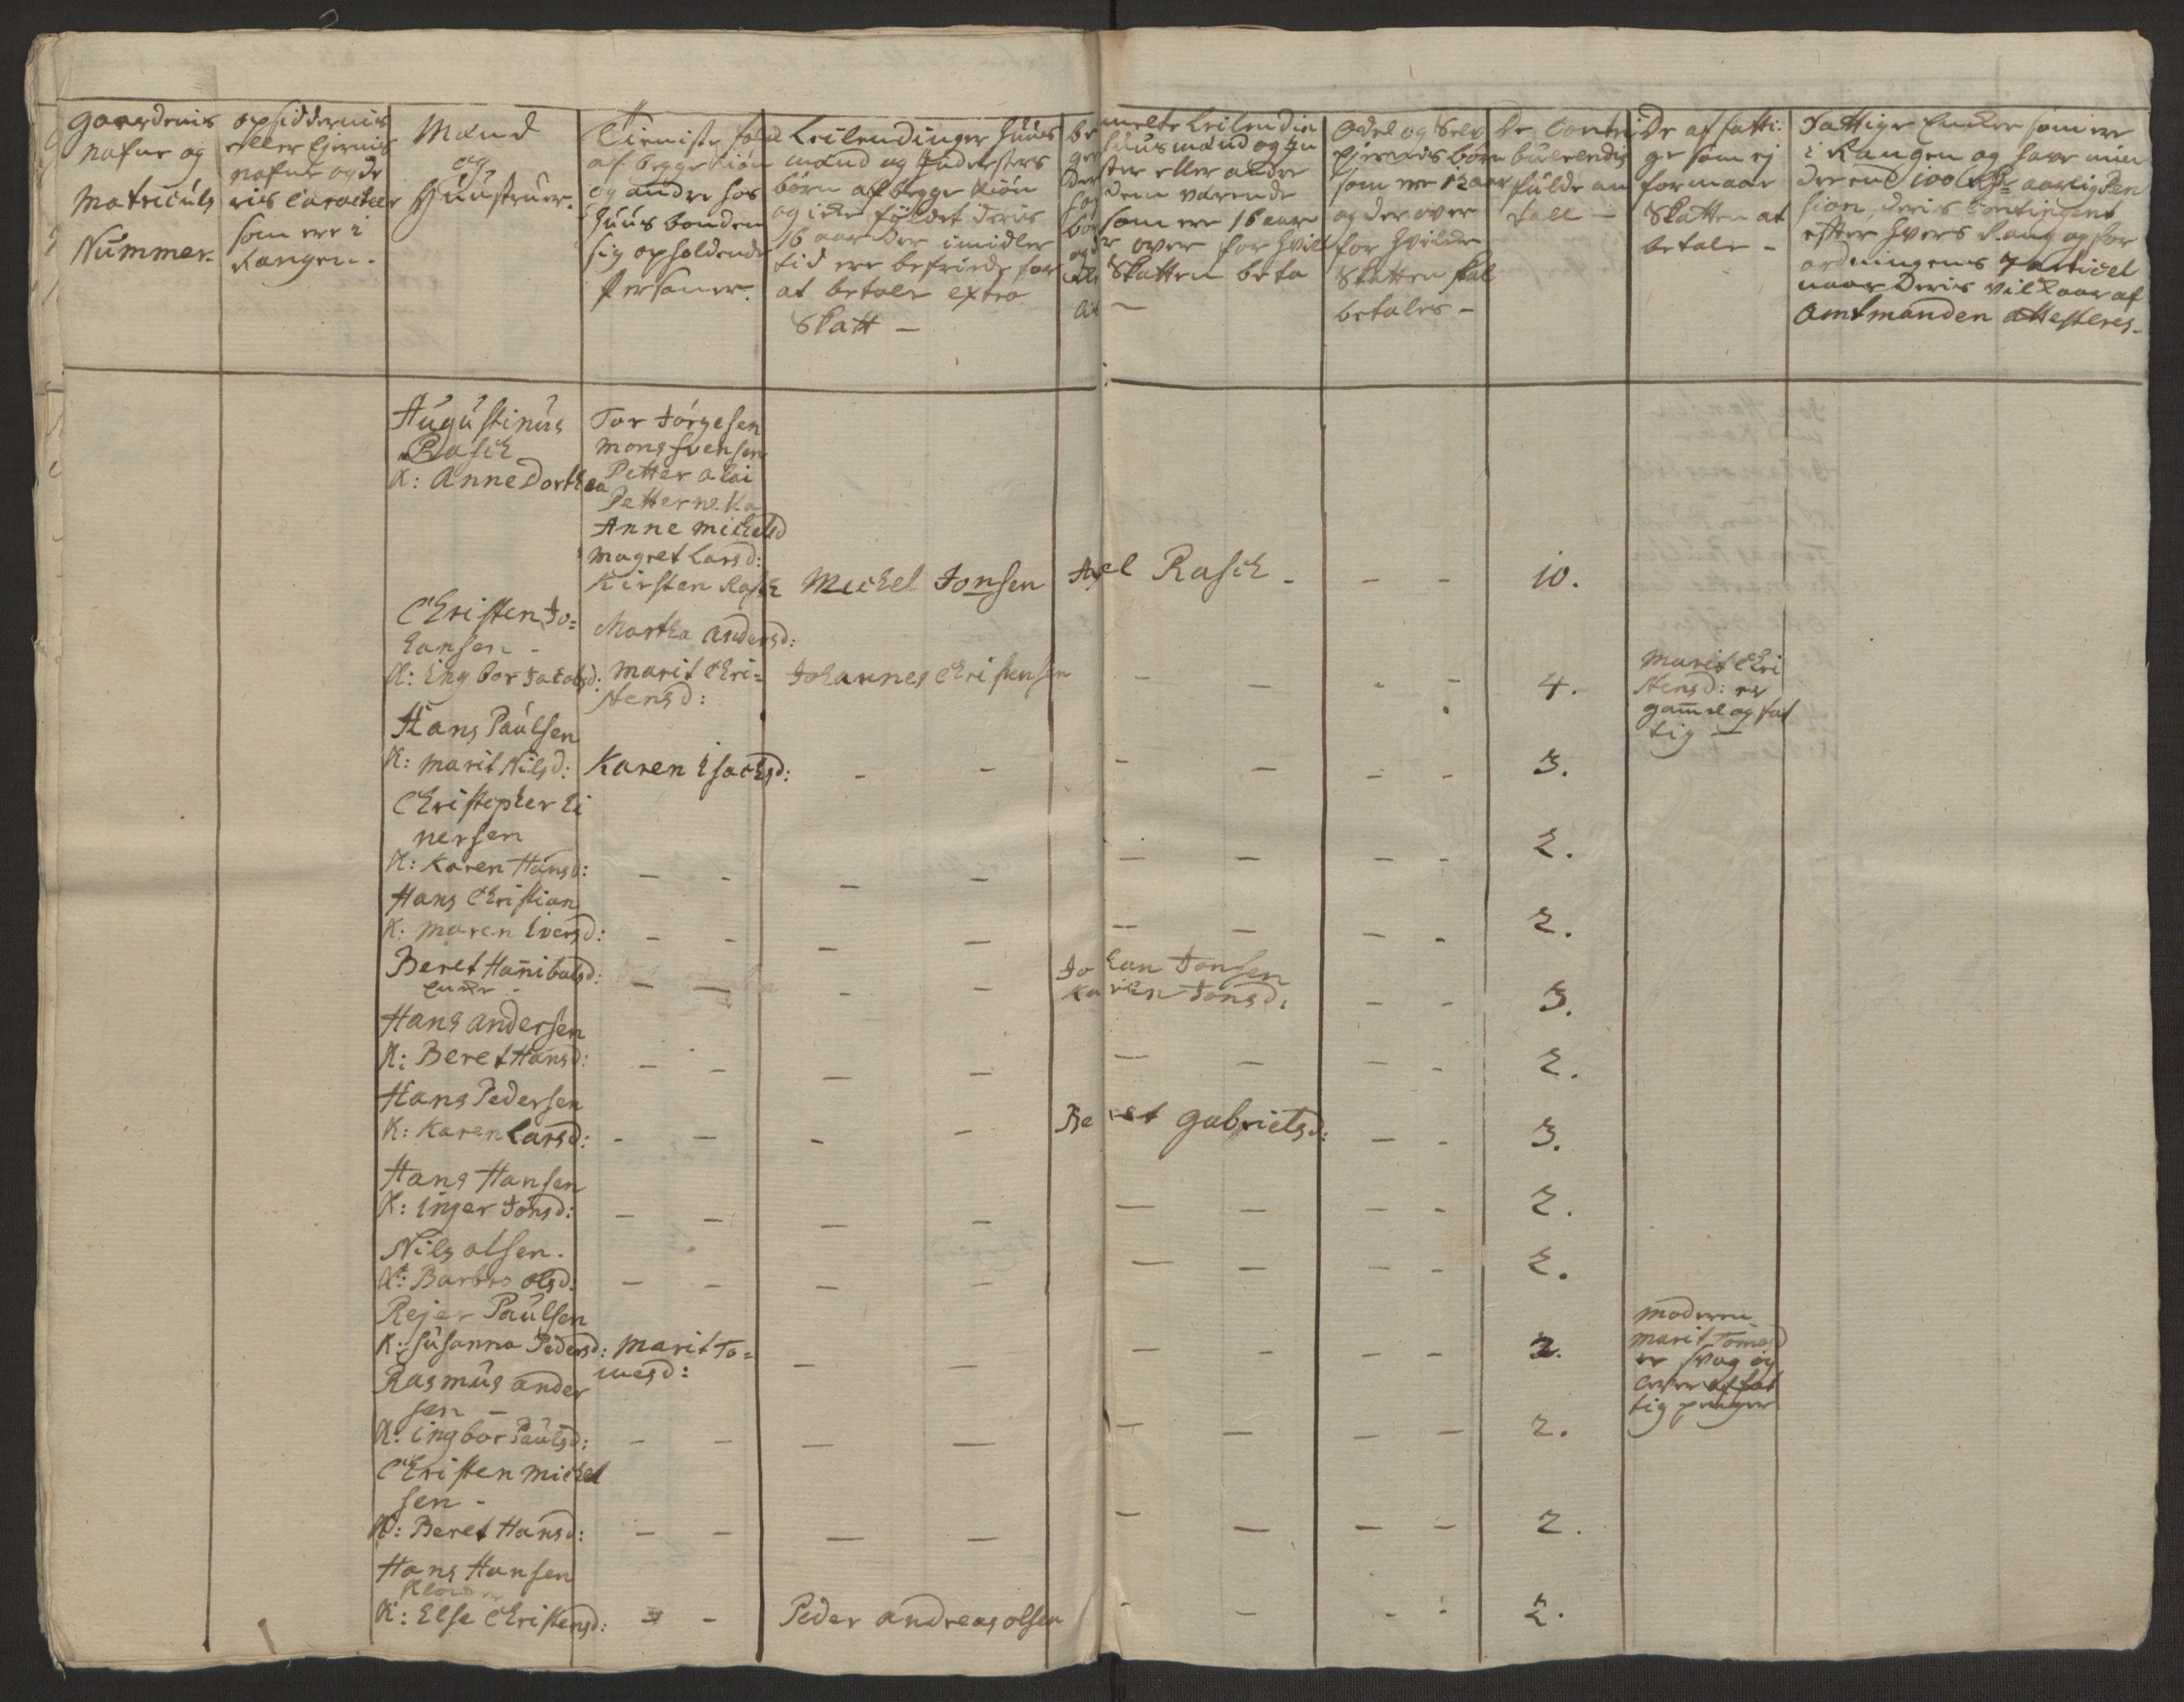 gaardenis
nafne og
Matriculs
Nummer.
opsiddernis
eller Eiernis
nafne og de
ris Caracteer
som ere i
Rangen.
Mænd
og
Hüustruer.
Tieniste folck
af begge Kiön
og andre hos
Huus bonden
sig opholdende
Personer.
Leilendinger Huus
mænd og Inderster
börn af begge Kiön
og icke fyldet deris
16 aar der imidler
tid ere befriede for
at betale extra
Skatt —
melte Leilendin
Huusmænd og In
ster eller andre
dem værende
som ere 16 aar
over for hvil
Skatten beta
Odel og Selv
Eiernis börn
som ere 12 aar
og der over
for hvilke
Skatten skal
betales —
De Contri
buerendis
fulde an
tall —
De af fatti:
ge som ej
formaar
Skatten at
betale —
Fattige Encker som ere
i Rangen og have min
dre end 100 Rdr aarig Pen
sion, deris Contingent
efter hvers Rang og for
ordningens 7 articel
naar deris vilkaar af
Amtmanden attesteres.
Augustinus
Rasch
K: Anne Dorthea
Tor Jörgesen
Mons Svensen
Petter
Petter
Anne Michelsd
Magret Larsd:
Kirsten Rasch
Michel Jonsen
Axel Rasch — — — 10.
Christen Jo=
hansen —
K: Ingbor Jacobsd:
Martha Andersd:
Marit Chri=
stensd:
Johannes Christensen — — — — 4.
Marit Chri
stensd: er
gamel og fat
tig —
Hans Paulsen
K: Marit Nilsd: Karen Isachsd: — — — — — — 3.
Christopher Ei
nersen
K: Karen Hansd: — — — — — — — — 2.
Hans Christian
K: Maren Iversd: — — — — — — — — 2.
Beret Hanibalsd:
Encke — — — — — Johan Jonsen
Karen Jonsd: — — 3.
Hans Andersen
K: Beret Hansd: — — — — — — — — 2.
Hans Pedersen
K: Karen Larsd: — — — — Beret Gabrielsd: — — 3.
Hans Hansen
K: Inger Jonsd: — — — — — — — — 2.
Nils Olsen.
K: Barbro Olsd: — — — — — — — — 2.
Rejer Paulsen
K: Susanna Pedersd: Marit To=
mesd: — — — — — — 2.
Moderen
Marit Tomesd
er svag og
lever af fat
tig penger
Rasmus Ander
sen —
K: Ingbor Paulsd: — — — — — — — — 2.
Christen Michel
sen —
K: Beret Hansd: — — — — — — — — 2.
Hans Hansen
K: Else Christensd: — — Peder Andreas Olsen — — — — 2.